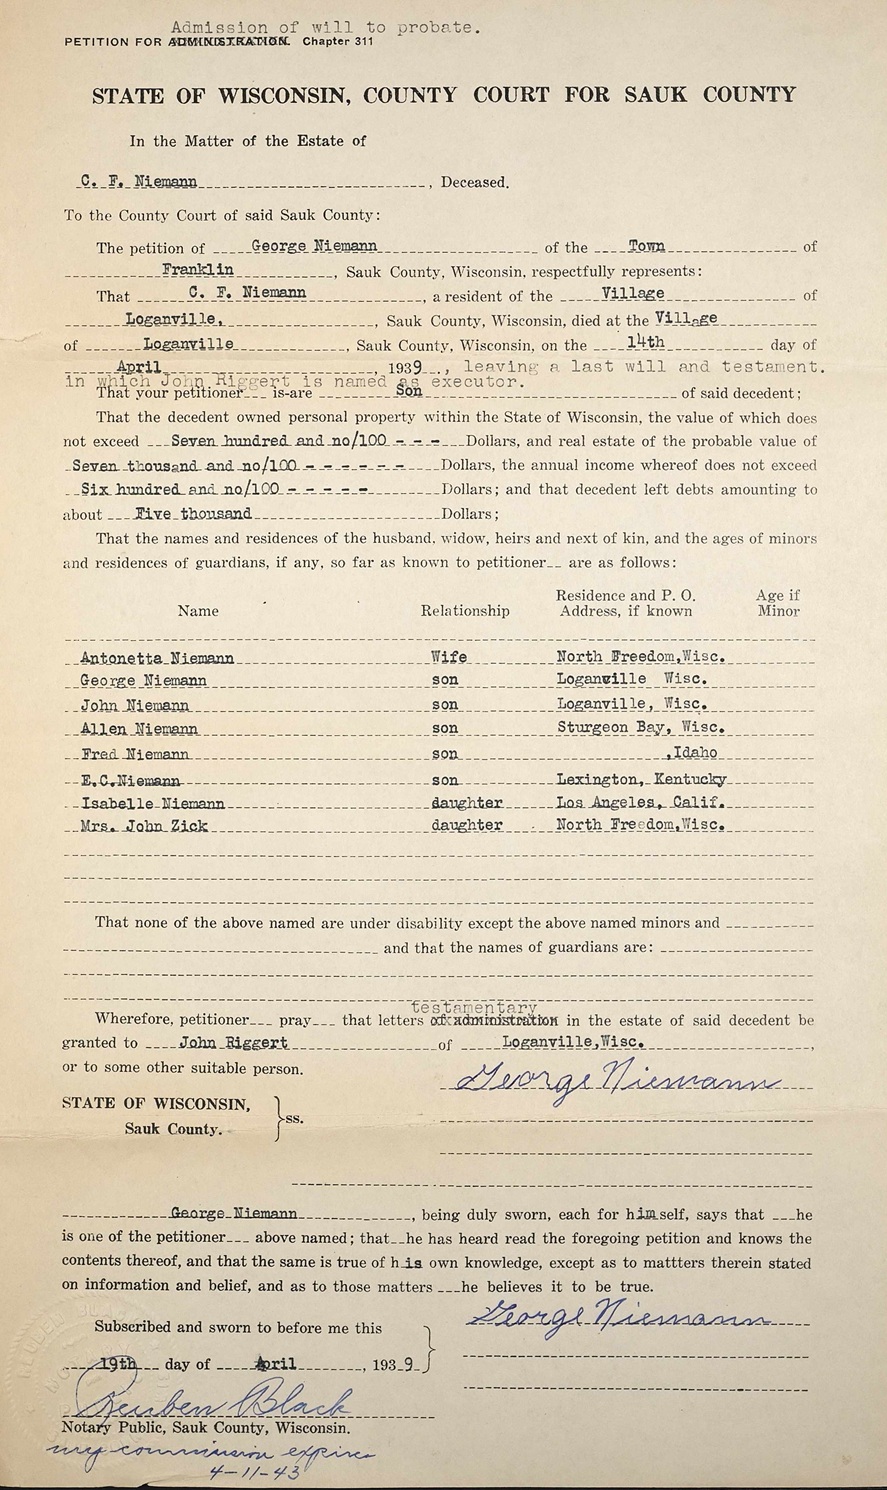 Admission of will to probate.
PETITION FOR ADMINISTRATION. Chapter 311
STATE OF WISCONSIN, COUNTY COURT FOR SAUK COUNTY
In the Matter of the Estate of
C. F. Niemann, Deceased.
To the County Court of said Sauk County:
The petition of George Niemann of the Town of
Franklin, Sauk County, Wisconsin, respectfully represents:
That C. F. Niemann, a resident of the Village of
Loganville, Sauk County, Wisconsin, died at the Village
of Loganville, Sauk County, Wisconsin, on the 14th day of
April, 1939, leaving a last will and testament.
in which John Riggert is named as executor.
That your petitioner is-are Son of said decedent;
That the decedent owned personal property within the State of Wisconsin, the value of which does
not exceed Seven hundred and no/100 - - - Dollars, and real estate of the probable value of
Seven thousand and no/100 - - - - - - Dollars, the annual income whereof does not exceed
Six hundred and no/100 - - - - - Dollars; and that decedent left debts amounting to
about Five thousand Dollars;
That the names and residences of the husband, widow, heirs and next of kin, and the ages of minors
and residences of guardians, if any, so far as known to petitioner are as follows:
Name Relationship Residence and P. O. Address, if known Age if Minor
Antonetta Niemann Wife North Freedom,Wisc.
George Niemann son Loganville Wisc.
John Niemann son Loganville, Wisc.
Allen Niemann son Sturgeon Bay, Wisc.
Fred Niemann son ,Idaho
E.C.Niemann son Lexington, Kentucky
Isabelle Niemann daughter Los Angeles, Calif.
Mrs. John Zick daughter North Freedom,Wisc.
That none of the above named are under disability except the above named minors and
and that the names of guardians are:
testamentary
Wherefore, petitioner pray that letters of administration in the estate of said decedent be
granted to John Riggert of Loganville,Wisc.,
or to some other suitable person.
George Niemann
STATE OF WISCONSIN,
Sauk County. } ss.
George Niemann, being duly sworn, each for himself, says that he
is one of the petitioner above named; that he has heard read the foregoing petition and knows the
contents thereof, and that the same is true of his own knowledge, except as to mattters therein stated
on information and belief, and as to those matters he believes it to be true.
George Niemann
Subscribed and sworn to before me this
19th day of April, 1939
Reuben Black
Notary Public, Sauk County, Wisconsin.
my commission expires
4-11-43